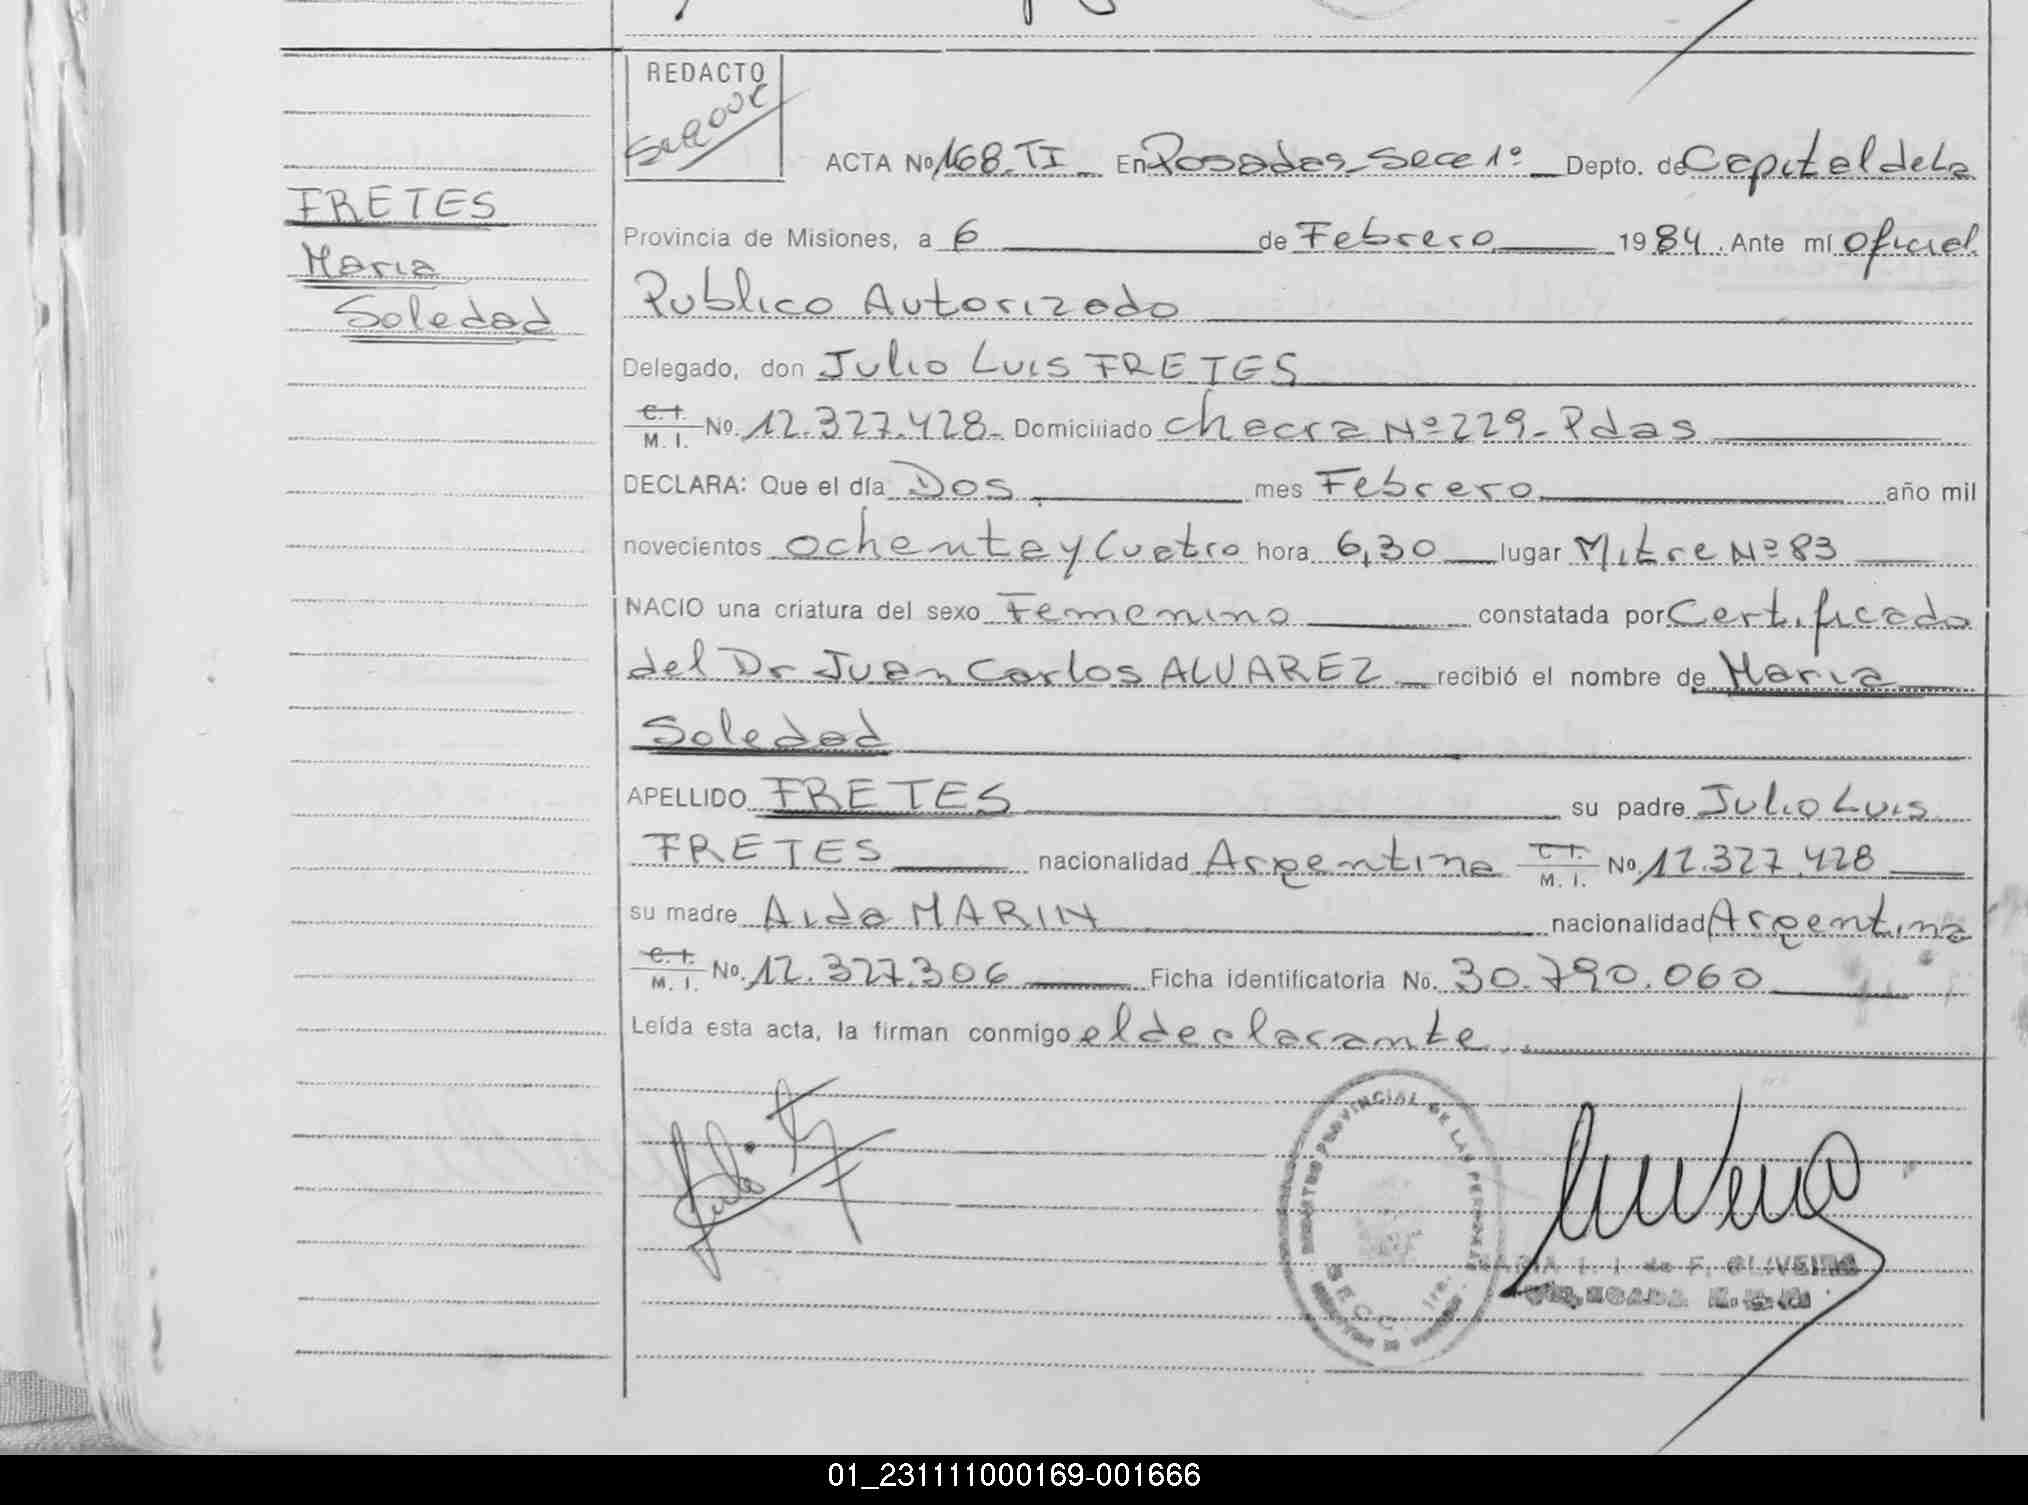 REDACTO
ACTA No 168. TI En Posadas Secc 1º Depto. de Capital de La
FRETES
Provincia de Misiones, a 6 de Febrero 1984. Ante mí oficial
Maria
Publico Autorizado
Soledad
Delegado, don Julio Luis FRETES
C. I. M. I. No. 12.327.428- Domiciliado Chacra Nº 229- Pdas
DECLARA: Que el día Dos mes Febrero año mil
novecientos ochenta y Cuatro hora 6,30 lugar Mitre Nº 83
NACIO una criatura del sexo Femenino constatada por Certificado
del Dr Juan Carlos ALVAREZ recibió el nombre de Maria
Soledad
APELLIDO FRETES su padre Julio Luis
FRETES nacionalidad Argentina C. I. M. I. No. 12.327.428
su madre Aida MARIN nacionalidad Argentina
C. I. M. I. No. 12.327.306 Ficha identificatoria No. 30.790.060
Leída esta acta, la firman conmigo el declarante
PROVINCIAL DE LAS PERSONAS
SECC. 1ra.
F. OLIVEIRA
01_231111000169-001666